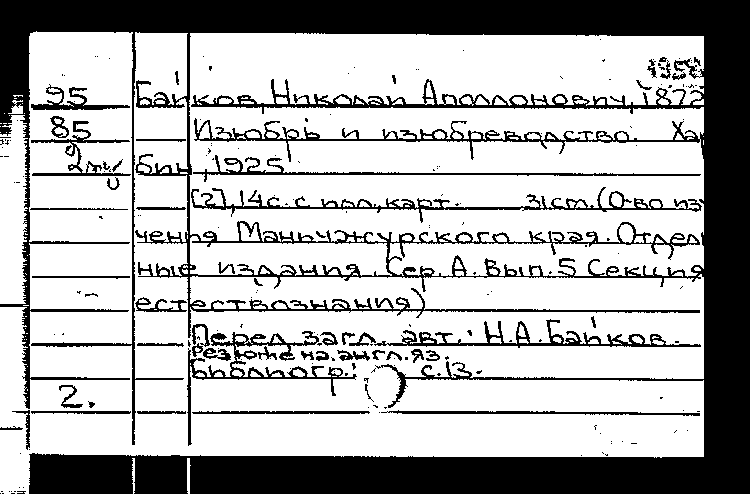 1958
95 Байков, Николай Аполлонович, 1872
85 Изюбрь и изюбреводство. Хар
бин, 1925
[2], 14 с. с илл., карт. 31 см. (О-во изу
чения Маньчжурского края. Отдель
ные издания. Сер. А. Вып. 5 Секция
естествознания)
Перед загл. авт.: Н.А. Байков.
Резюме на англ. яз.
Библиогр.: с. 13.
2.